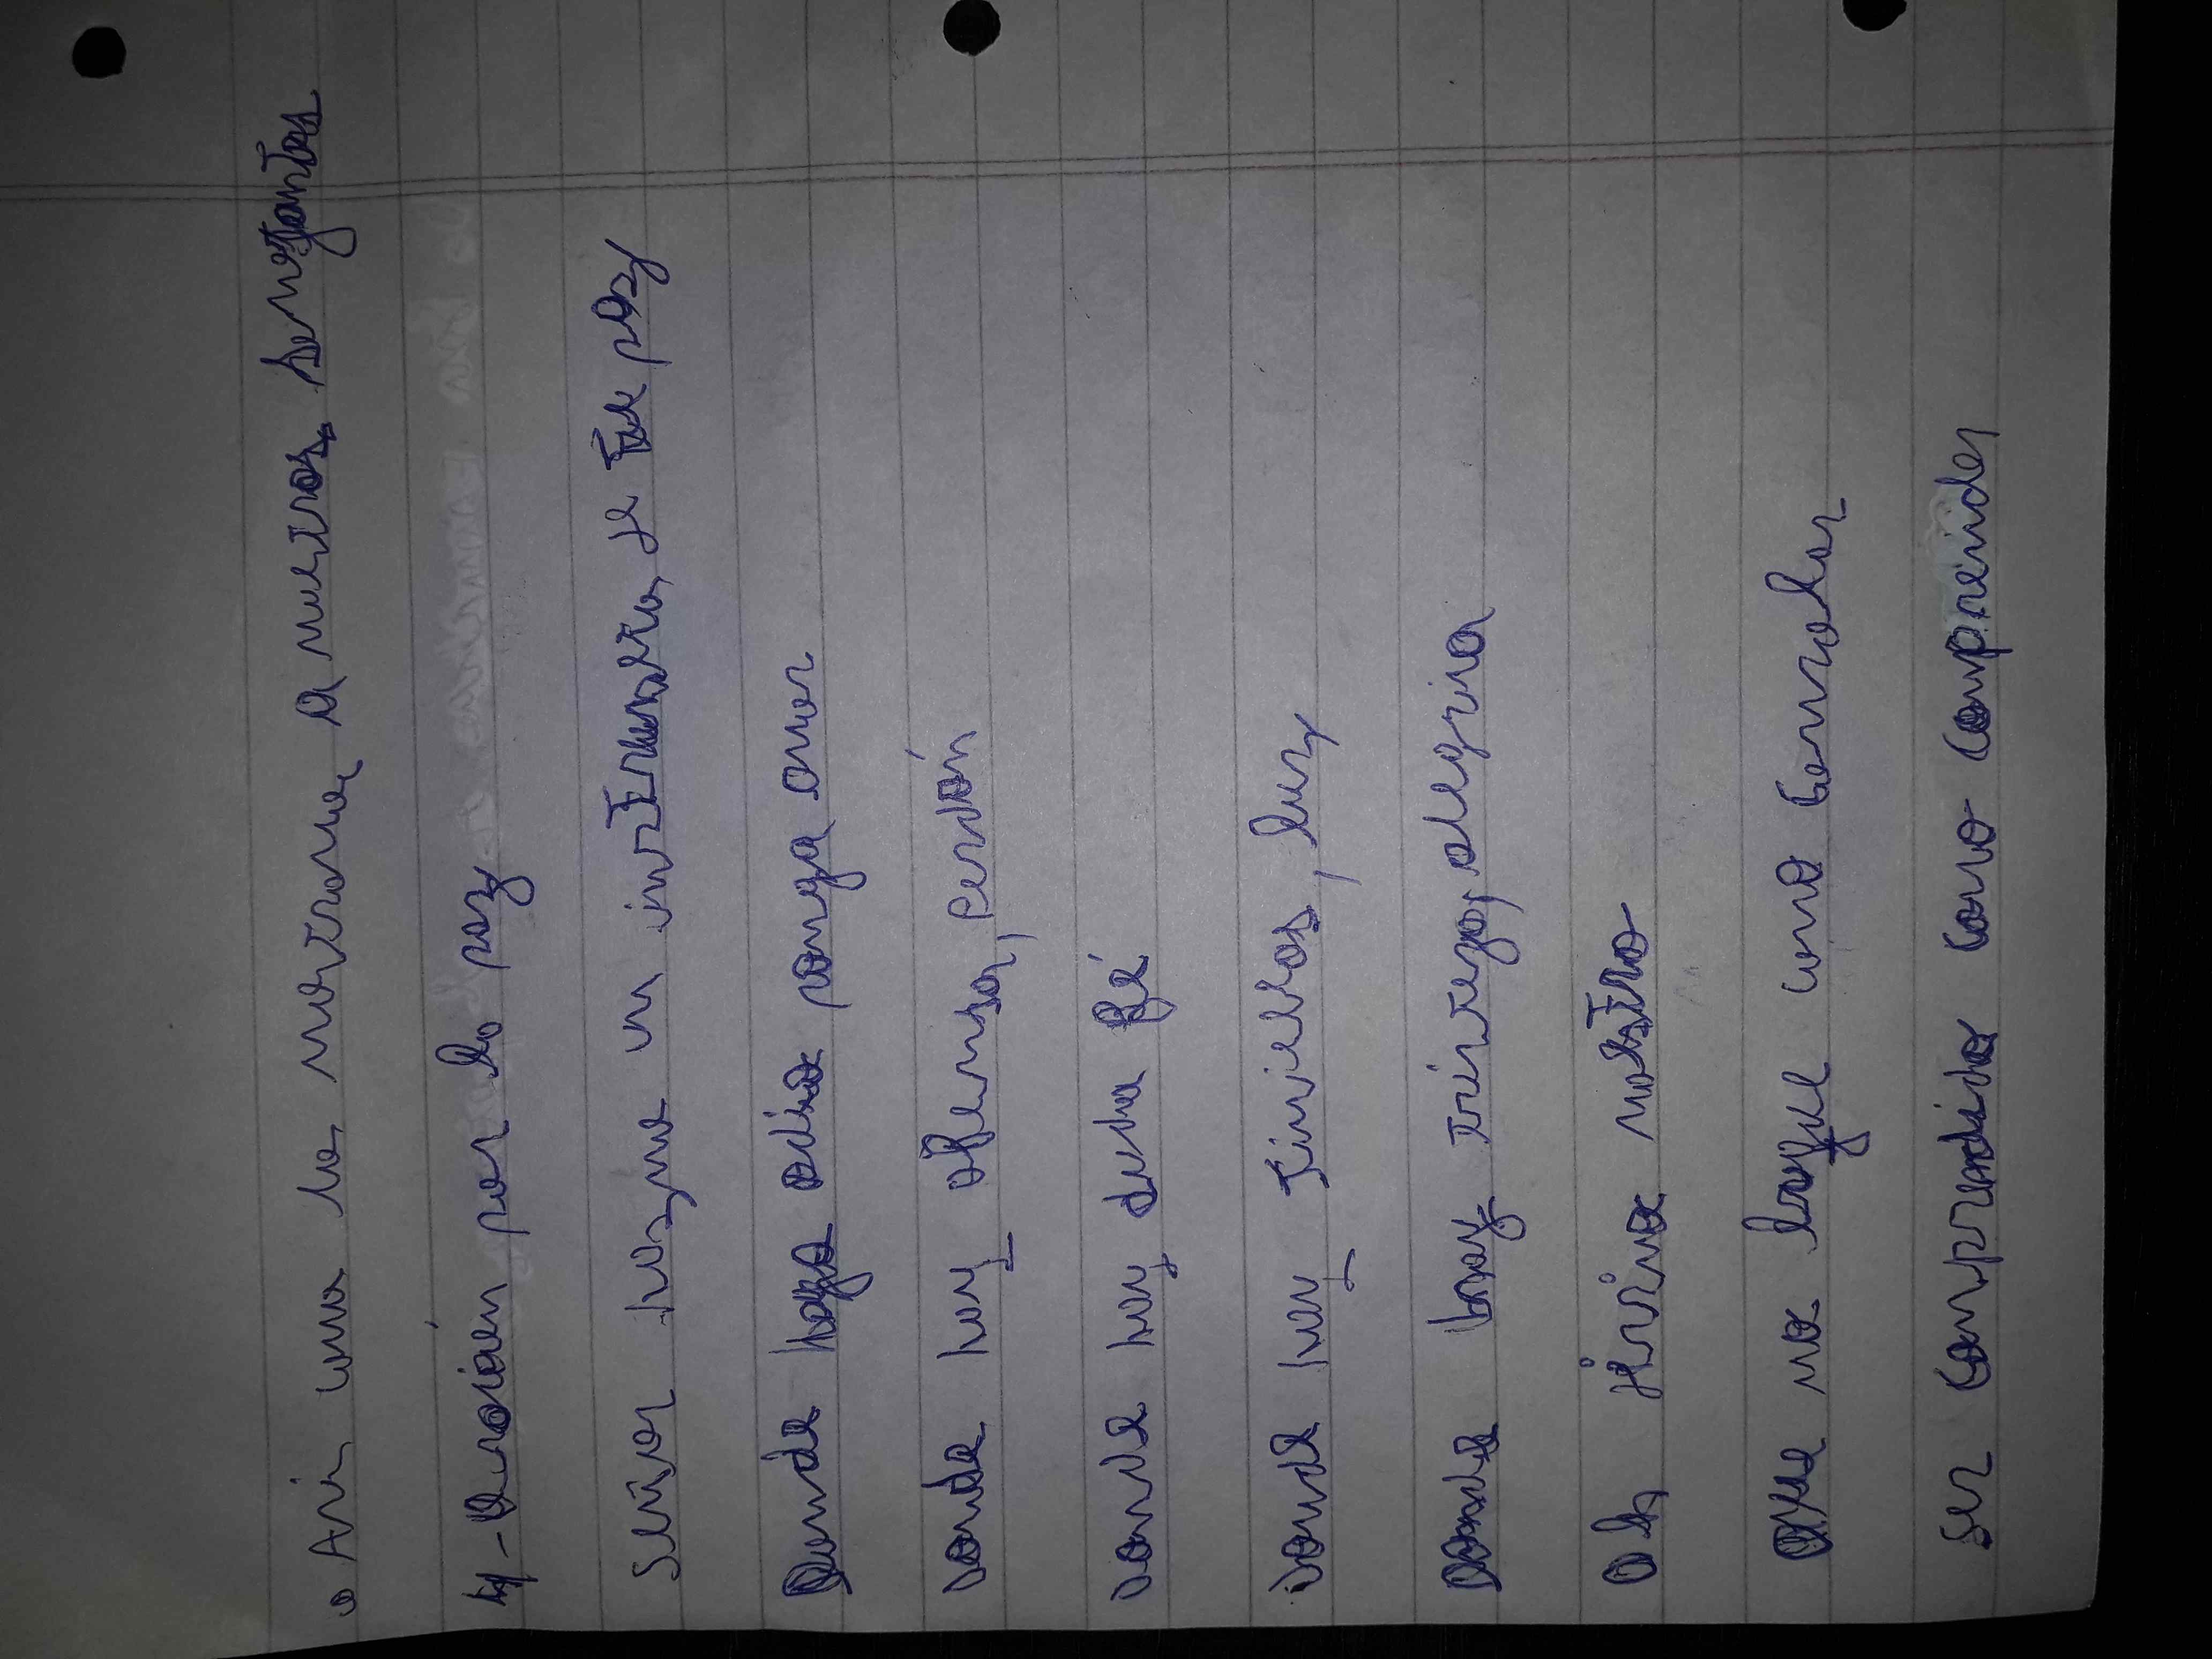 • Asi como los nostros a nuestros semejantes
4-Oración por la paz
Señor hazme un instrumento, de tu paz
Donde haya odio ponga amor
Donde hay ofensa, perdón
Donde hay duda fé
Donde hay tinieblas, luz
Donde hay tristeza, alegria
Oh divino mastro
Que no busque uno consolar
ser comprendido como comprender